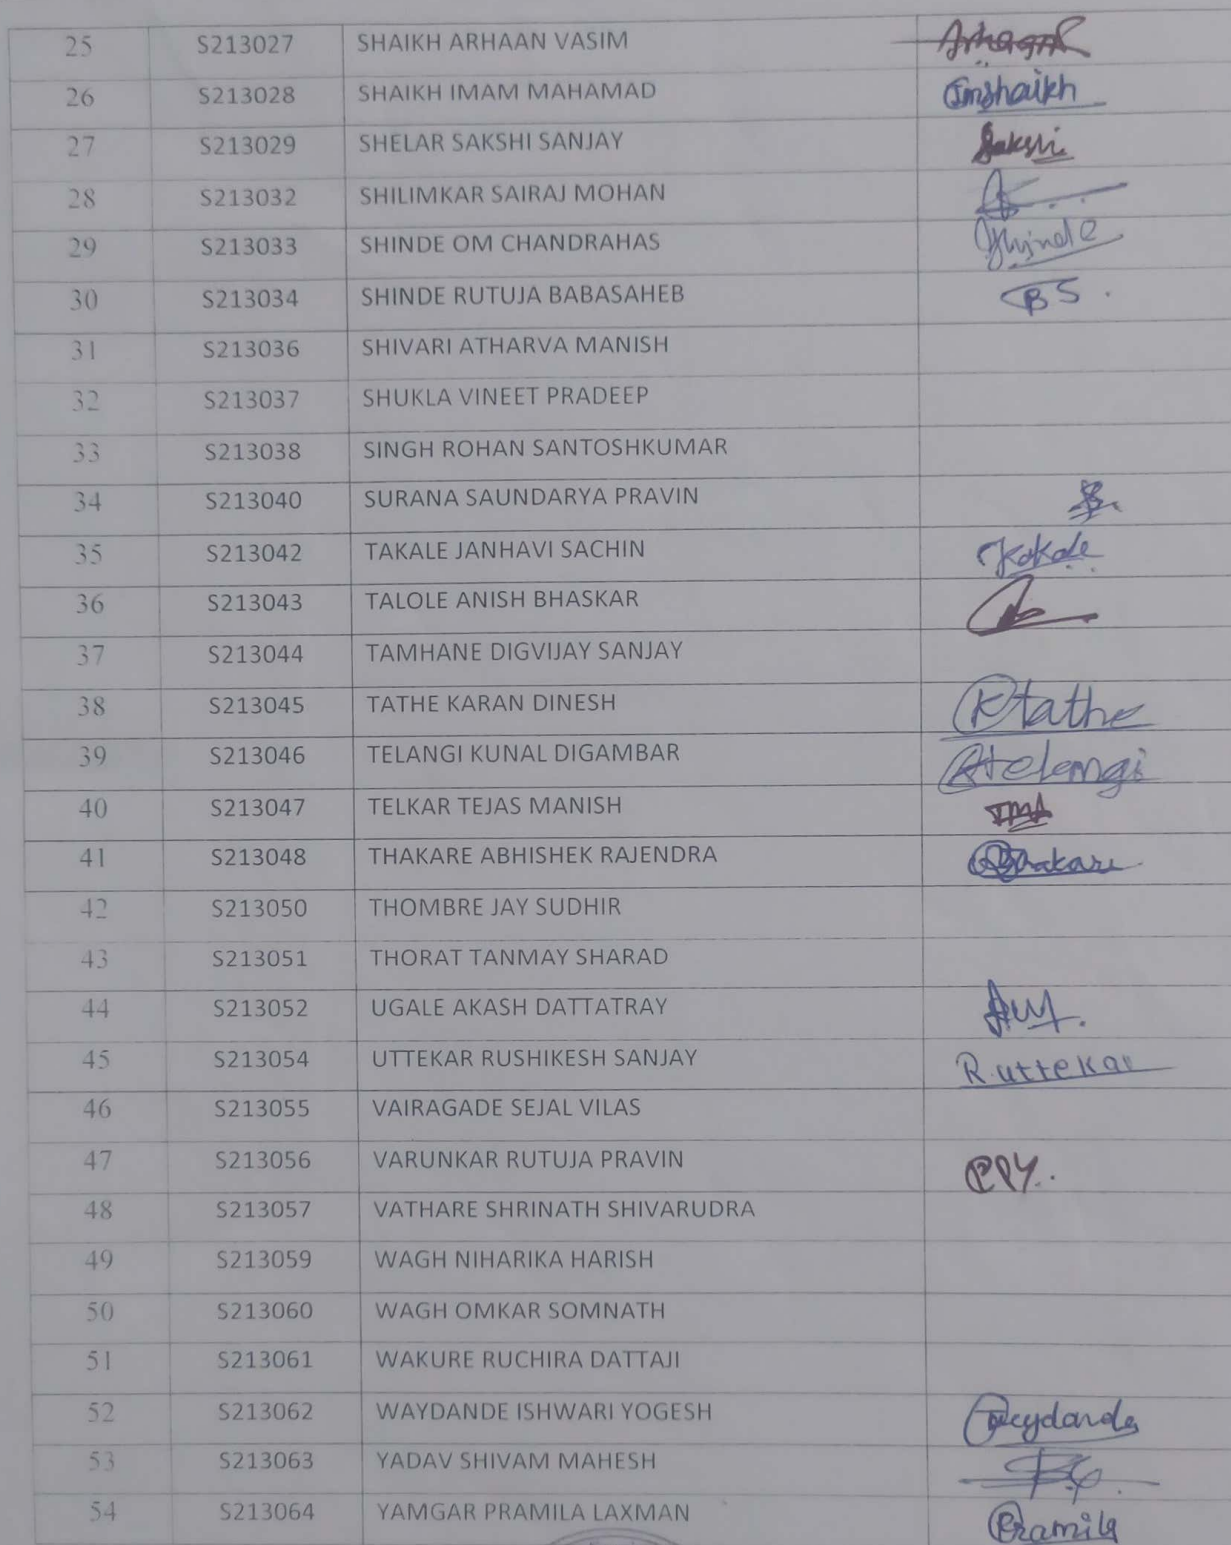 25 S213027 SHAIKH ARHAAN VASIM
26 S213028 SHAIKH IMAM MAHAMAD Imshaikh
27 S213029 SHELAR SAKSHI SANJAY Sakshi
28 S213032 SHILIMKAR SAIRAJ MOHAN
29 S213033 SHINDE OM CHANDRAHAS Shinde
30 S213034 SHINDE RUTUJA BABASAHEB
31 S213036 SHIVARI ATHARVA MANISH
32 S213037 SHUKLA VINEET PRADEEP
33 S213038 SINGH ROHAN SANTOSHKUMAR
34 S213040 SURANA SAUNDARYA PRAVIN
35 S213042 TAKALE JANHAVI SACHIN
36 S213043 TALOLE ANISH BHASKAR
37 S213044 TAMHANE DIGVIJAY SANJAY
38 S213045 TATHE KARAN DINESH Ktathe
39 S213046 TELANGI KUNAL DIGAMBAR
40 S213047 TELKAR TEJAS MANISH
41 S213048 THAKARE ABHISHEK RAJENDRA
42 S213050 THOMBRE JAY SUDHIR
43 S213051 THORAT TANMAY SHARAD
44 S213052 UGALE AKASH DATTATRAY
45 S213054 UTTEKAR RUSHIKESH SANJAY R.uttekar
46 S213055 VAIRAGADE SEJAL VILAS
47 S213056 VARUNKAR RUTUJA PRAVIN
48 S213057 VATHARE SHRINATH SHIVARUDRA
49 S213059 WAGH NIHARIKA HARISH
50 S213060 WAGH OMKAR SOMNATH
51 S213061 WAKURE RUCHIRA DATTAJI
52 S213062 WAYDANDE ISHWARI YOGESH
53 S213063 YADAV SHIVAM MAHESH
54 S213064 YAMGAR PRAMILA LAXMAN Pramila